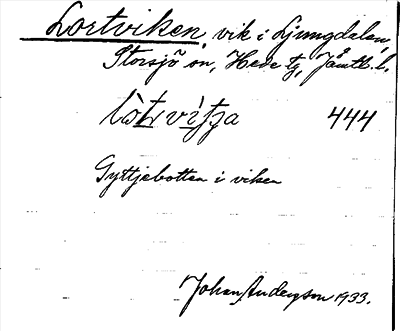 Lortviken, vik i Ljungdalen,
Storsjö sn, Hede tg, Jämtl. l.
444
Gyttjebotten i viken
Johan Anderson 1933.